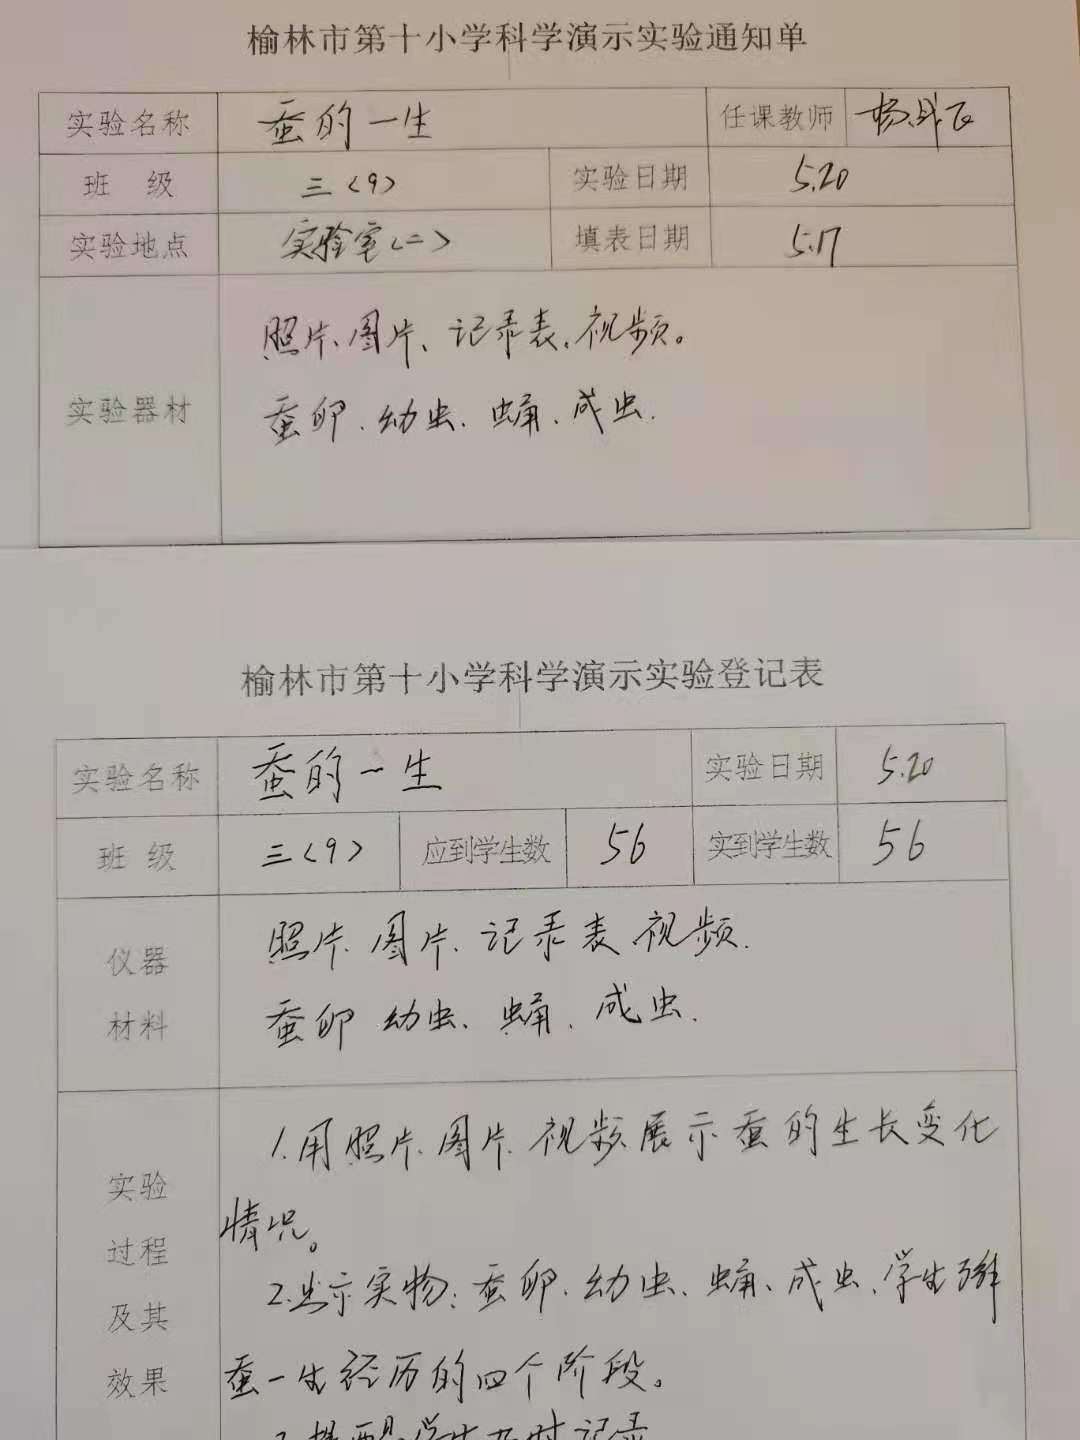 榆林市第十小学科学演示实验通知单
实验名称 蚕的一生 任课教师 杨
班 级 三(9) 实验日期 5.20
实验地点 实验室(二) 填表日期 5.17
实验器材 照片、图片、记录表、视频。
蚕卵、幼虫、蛹、成虫.
榆林市第十小学科学演示实验登记表
实验名称 蚕的一生 实验日期 5.20
班 级 三(9) 应到学生数 56 实到学生数 56
仪器
材料
照片、图片、记录表、视频.
蚕卵 幼虫、蛹、成虫.
实验
过程
及其
效果
1.用照片、图片、视频展示蚕的生长变化
情况。
2.出示实物:蚕卵、幼虫、蛹、成虫、学生
蚕一生经历的四个阶段。
3.提醒学生及时记录